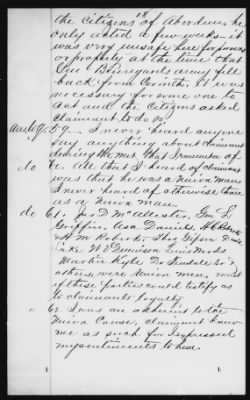 18
the citizens of Aberdeen he
only acted a few weeks - it
was very unsafe here for person
or property at the time that
Gen Beauregards army fell
back from Corinth, it was
necessary for some one to
act and the Citizens asked
claimant to do so.
Ans to Q. 59 - I never heard anyone
say anything about claimant
during the war that I remember of
do 60. All that I heard of claimant
was that he was a Union man
I never heard of otherwise than
as a Union man.
do 61. Jas D McAllester, Geo L
Griffin, Asa Daniels,
W M Roberts, Thos
Lake
Kyle
others, were Union men, most
of these parties could testify as
to claimants loyalty
" 62 I was an adherent to the
Union Cause, claimant knew
me as such for I expressed
my sentiments to him.